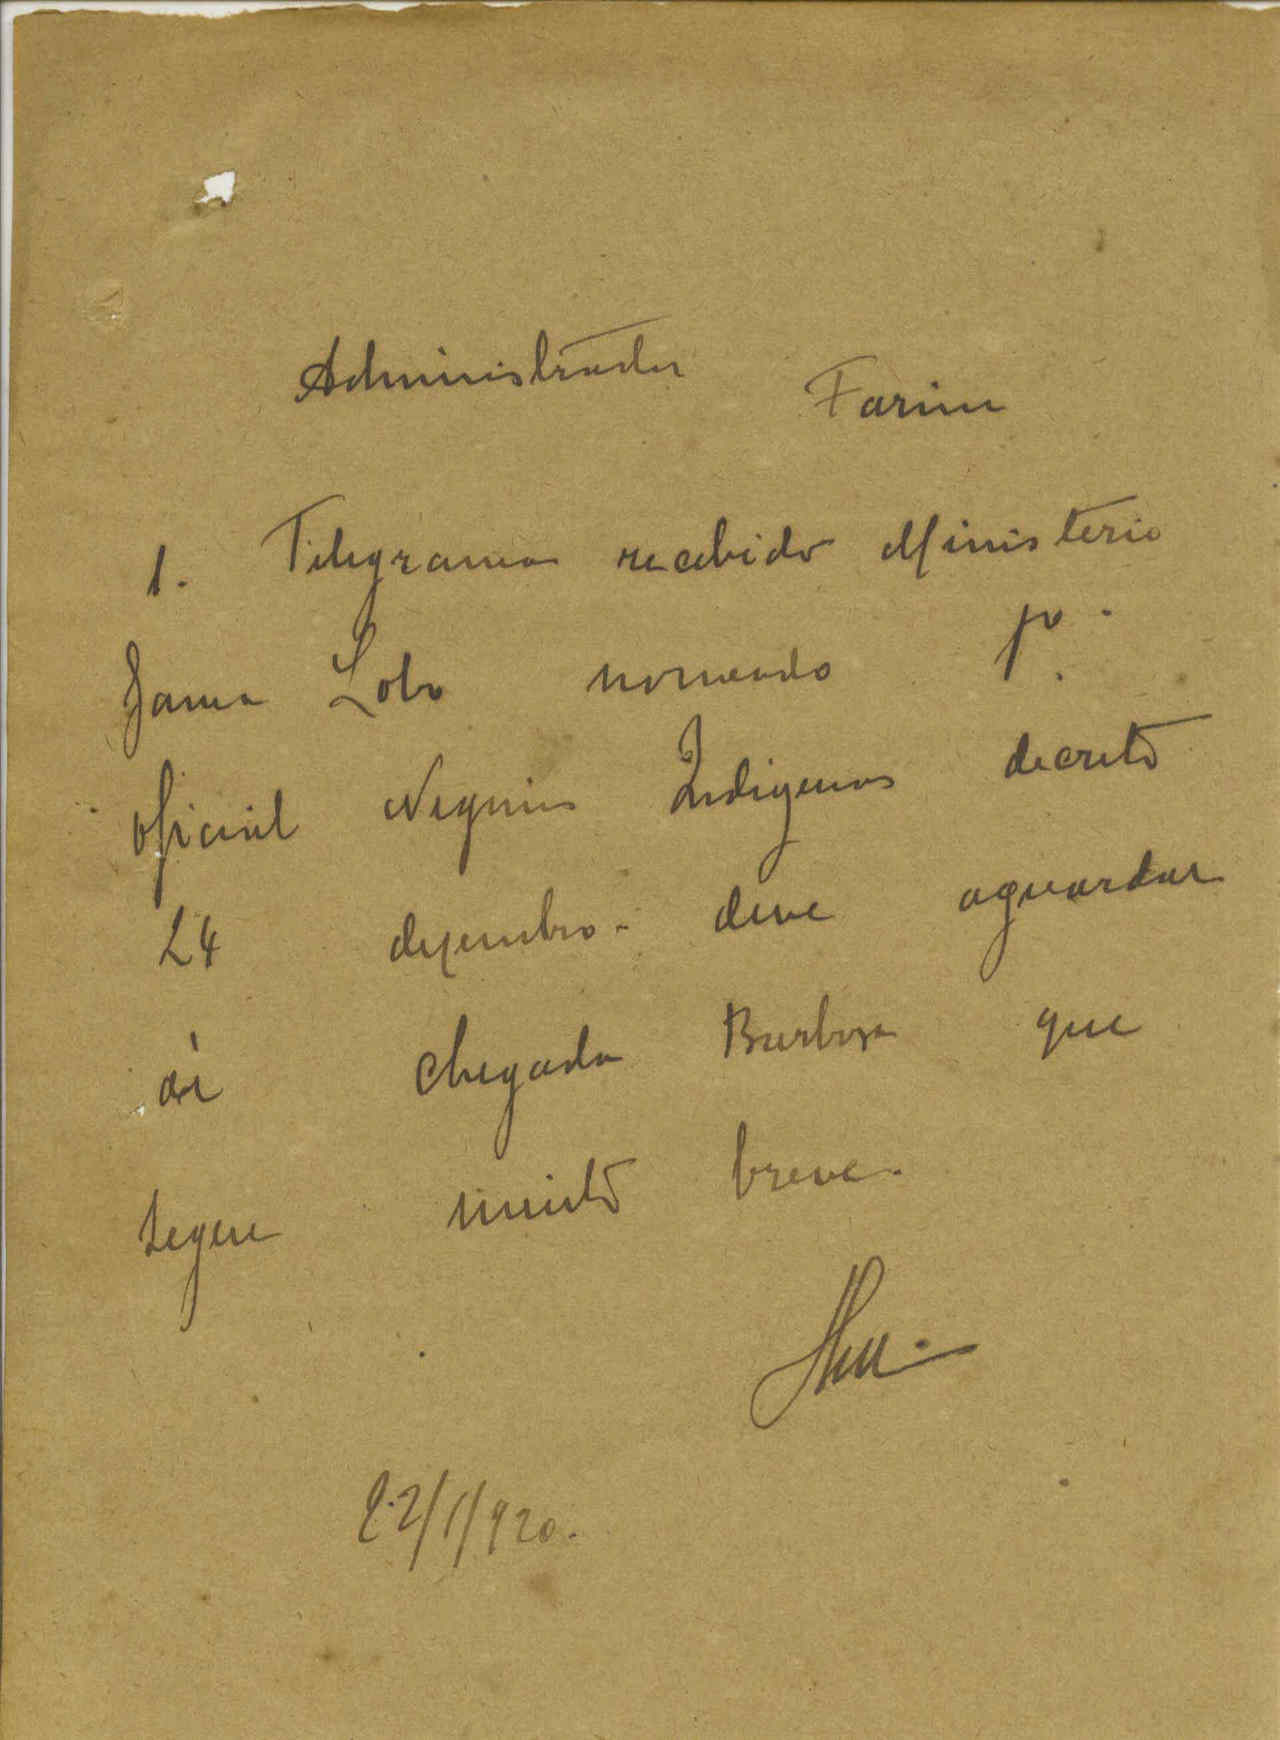 Administrador Farim
1. Telegrama recebido Ministerio
Gama Lobo nomeado pº.
oficial Negocios Indigenas decreto
24 dezembro. deve aguardar
ai chegada Barbosa que
segue muito breve.
22/1/920.